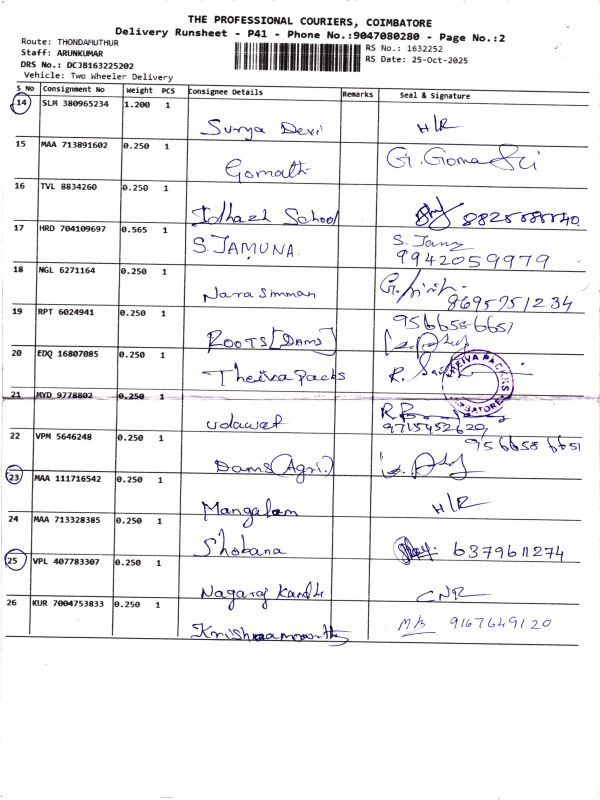 THE PROFESSIONAL COURIERS, COIMBATORE
Delivery Runsheet - P41 - Phone No.:9047080280 - Page No.:2
Route: THONDAMUTHUR
RS No.: 1632252
Staff: ARUNKUMAR
RS Date: 25-Oct-2025
DRS No.: DCJB163225202
Vehicle: Two Wheeler Delivery
S No Consignment No Weight PCS Consignee Details Remarks Seal & Signature
14 SLM 380965234 1.200 1
Surya Devi H/R
15 MAA 713891602 0.250 1
Gomathi G. Goma
16 TVL 8834260 0.250 1
Idhazh School
17 HRD 704109697 0.565 1
S. JAMUNA. S. Jamy
9942059979
18 NGL 6271164 0.250 1
Narasimman
8695751234
19 RPT 6024941 0.250 1
956658 6651
ROOTS [DAMS]
20 EDQ 16807085 0.250 1
Theiva packs R.
THEIVA PACKS
21 MYD 9778802 0.250 1
udawat
9715452629
22 VPM 5646248 0.250 1
956658 6651
Dams (Agri.)
23 MAA 111716542 0.250 1
Mangalam H/R
24 MAA 713328385 0.250 1
Shobana 6379611274
25 VPL 407783307 0.250 1
Nagaraj Kandhi CNR
26 KUR 7004753833 0.250 1
Krishnamoorthy M/B 9167649120